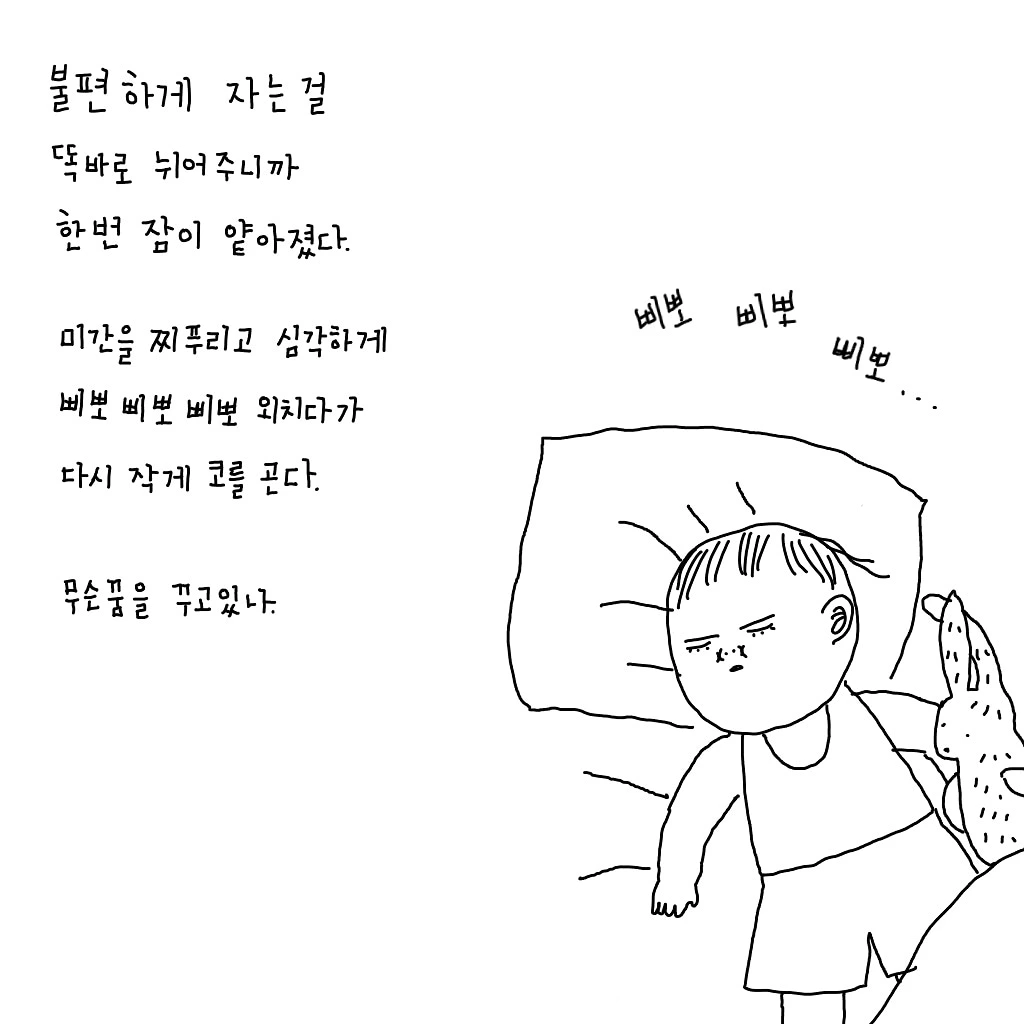 불편하게 자는걸
똑바로 뉘어주니까
한번 잠이 얕아졌다.
미간을 찌푸리고 심각하게
삐뽀 삐뽀 삐뽀 외치다가
다시 작게 코를 곤다.
무슨꿈을 꾸고있나.
삐뽀 삐뽀
삐뽀...